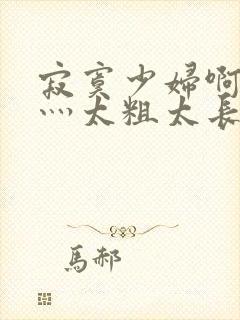 寂寞少婦啊
灬太粗太長
馬郝